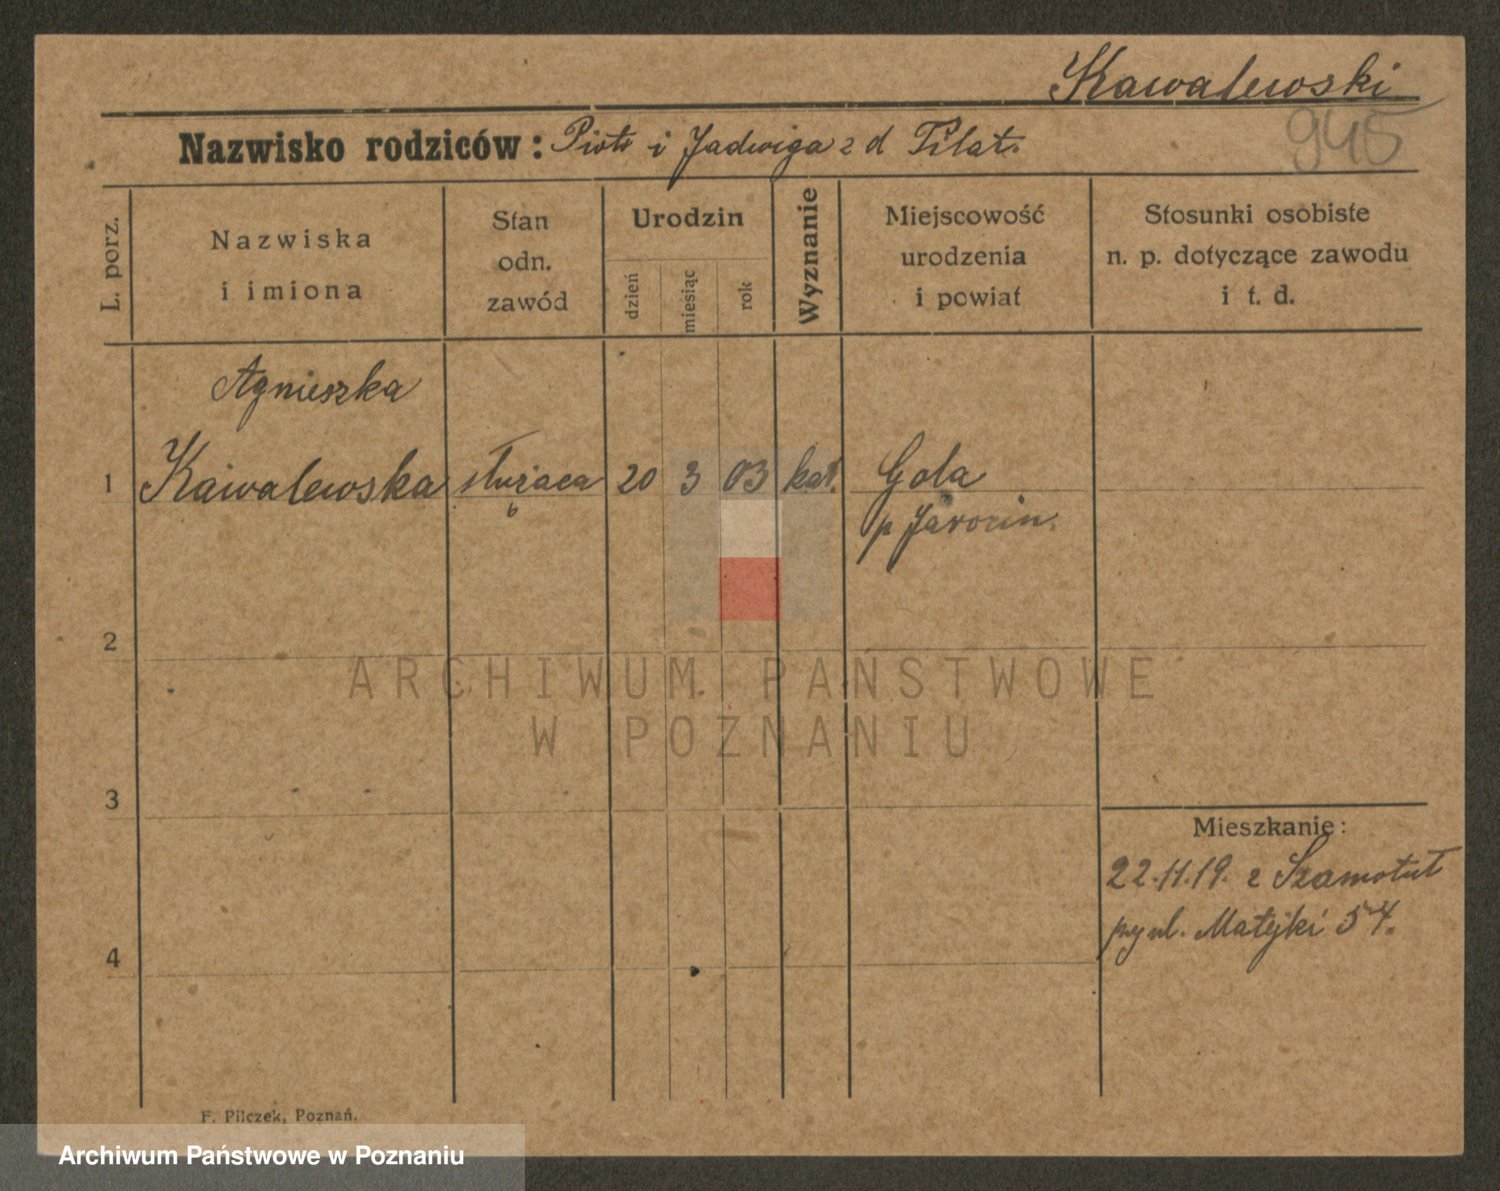 Kawalewski
945
Nazwisko rodziców: Piotr i Jadwiga z d Pilat.
L. porz.
Nazwiska i imiona
Stan odn. zawód
Urodzin
dzień
miesiąc
rok
Wyznanie
Miejscowość urodzenia i powiat
Stosunki osobiste n. p. dotyczące zawodu i t. d.
Agnieszka
1 Kawalewska służąca 20 3 03 kat. Gola
p Jarocin.
2
ARCHIWUM PAŃSTWOWE
W POZNANIU
3
Mieszkanie:
22.11.19. z Szamotuł
ul. Matejki 54.
4
F. Pilczek, Poznań.
Archiwum Państwowe w Poznaniu